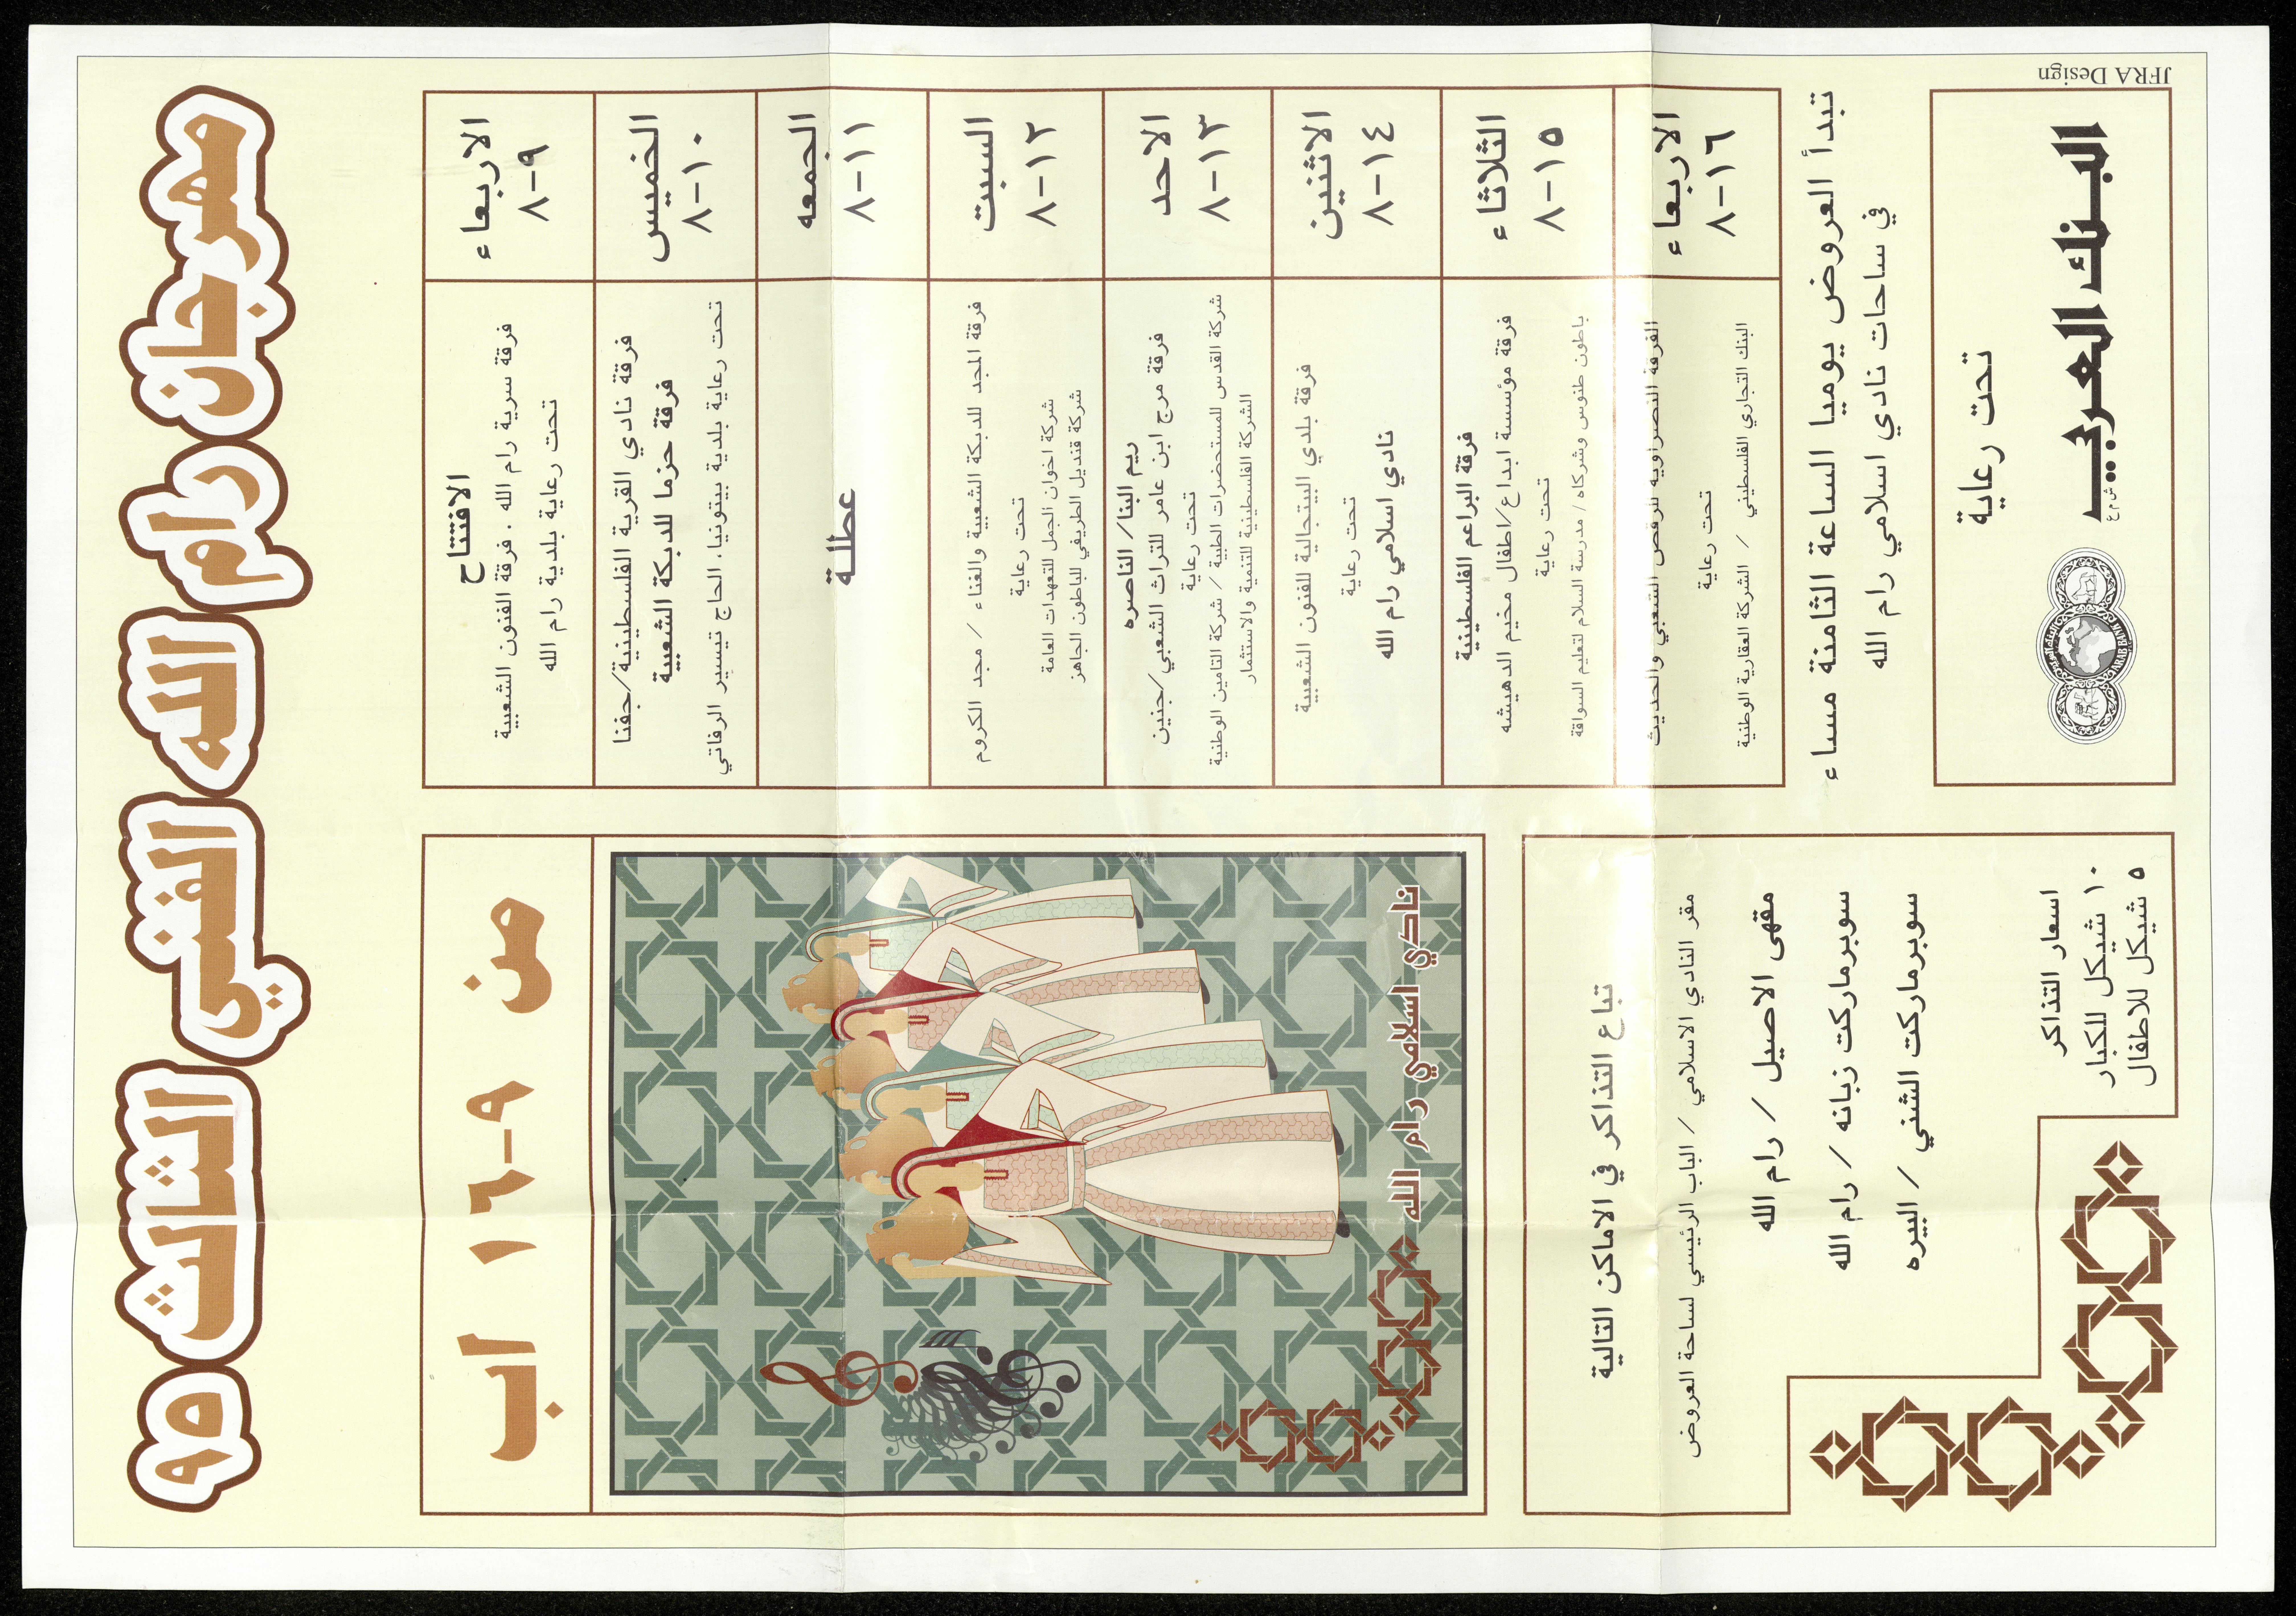 مهرجان رام الله الفني الثالث
من ٩-١٦ اب
الاربعاء
٩-٨
الافتتاح
فرقة سرية رام الله . فرقة الفنون الشعبية
تحت رعاية بلدية رام الله
الخميس
١٠-٨
فرقة نادي القرية الفلسطينية/جفنا
فرقة حزما للدبكة الشعبية
تحت رعاية بلدية بيتونيا، الحاج تيسير الرفاتي
الجمعه
١١-٨
عطلة
السبت
١٢-٨
فرقة المجد للدبكة الشعبية والغناء / مجد الكروم
تحت رعاية
شركة اخوان الجمل للتعهدات العامة
شركة قنديل الطريفي للباطون الجاهز
الاحد
١٣-٨
ريم البنا/ الناصره
فرقة مرج ابن عامر للتراث الشعبي/جنين
تحت رعاية
شركة القدس للمستحضرات الطبية / شركة التامين الوطنية
الشركة الفلسطينية للتنمية والاستثمار
الاثنين
١٤-٨
فرقة بلدي البيتجالية للفنون الشعبية
تحت رعاية
نادي اسلامي رام الله
الثلاثاء
١٥-٨
فرقة البراعم الفلسطينية
فرقة مؤسسة ابداع/اطفال مخيم الدهيشه
تحت رعاية
باطون طنوس وشركاه / مدرسة السلام لتعليم السواقة
الاربعاء
١٦-٨
الفرقة النصراوية للرقص الشعبي والحديث
تحت رعاية
البنك التجاري الفلسطيني / الشركة العقارية الوطنية
تبدأ العروض يوميا الساعة الثامنة مساء
في ساحات نادي اسلامي رام الله
تحت رعاية
البنك العربي
ش م ع
ARAB BANK
نادي اسلامي رام الله
تباع التذاكر في الاماكن التالية
مقر النادي الاسلامي / الباب الرئيسي لساحة العروض
مقهى الاصيل / رام الله
سوبرماركت زبانه / رام الله
سوبرماركت الشني / البيره
اسعار التذاكر
١٠ شيكل للكبار
٥ شيكل للاطفال
JFRA Design